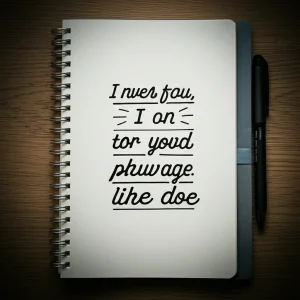 I nver fou,
I on
tor yovd
phuvage.
lihe doe